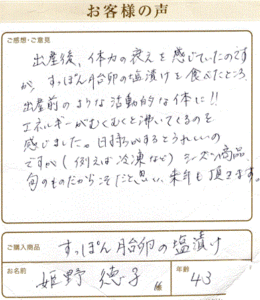 お客様の声
ご感想・ご意見
出産後、体力の衰えを感じていたのです
が、すっぽん胎卵の塩漬けを食べたところ
出産前のような活動的な体に!!
エネルギーがむくむくと沸いてくるのを
感じました。日持ちがするとうれしいの
ですが(例えば冷凍など)シーズン商品
旬のものだからこそだと思い、来年も頂きます。
ご購入商品
すっぽん胎卵の塩漬け
お名前
姫野 徳子 様
年齢
43